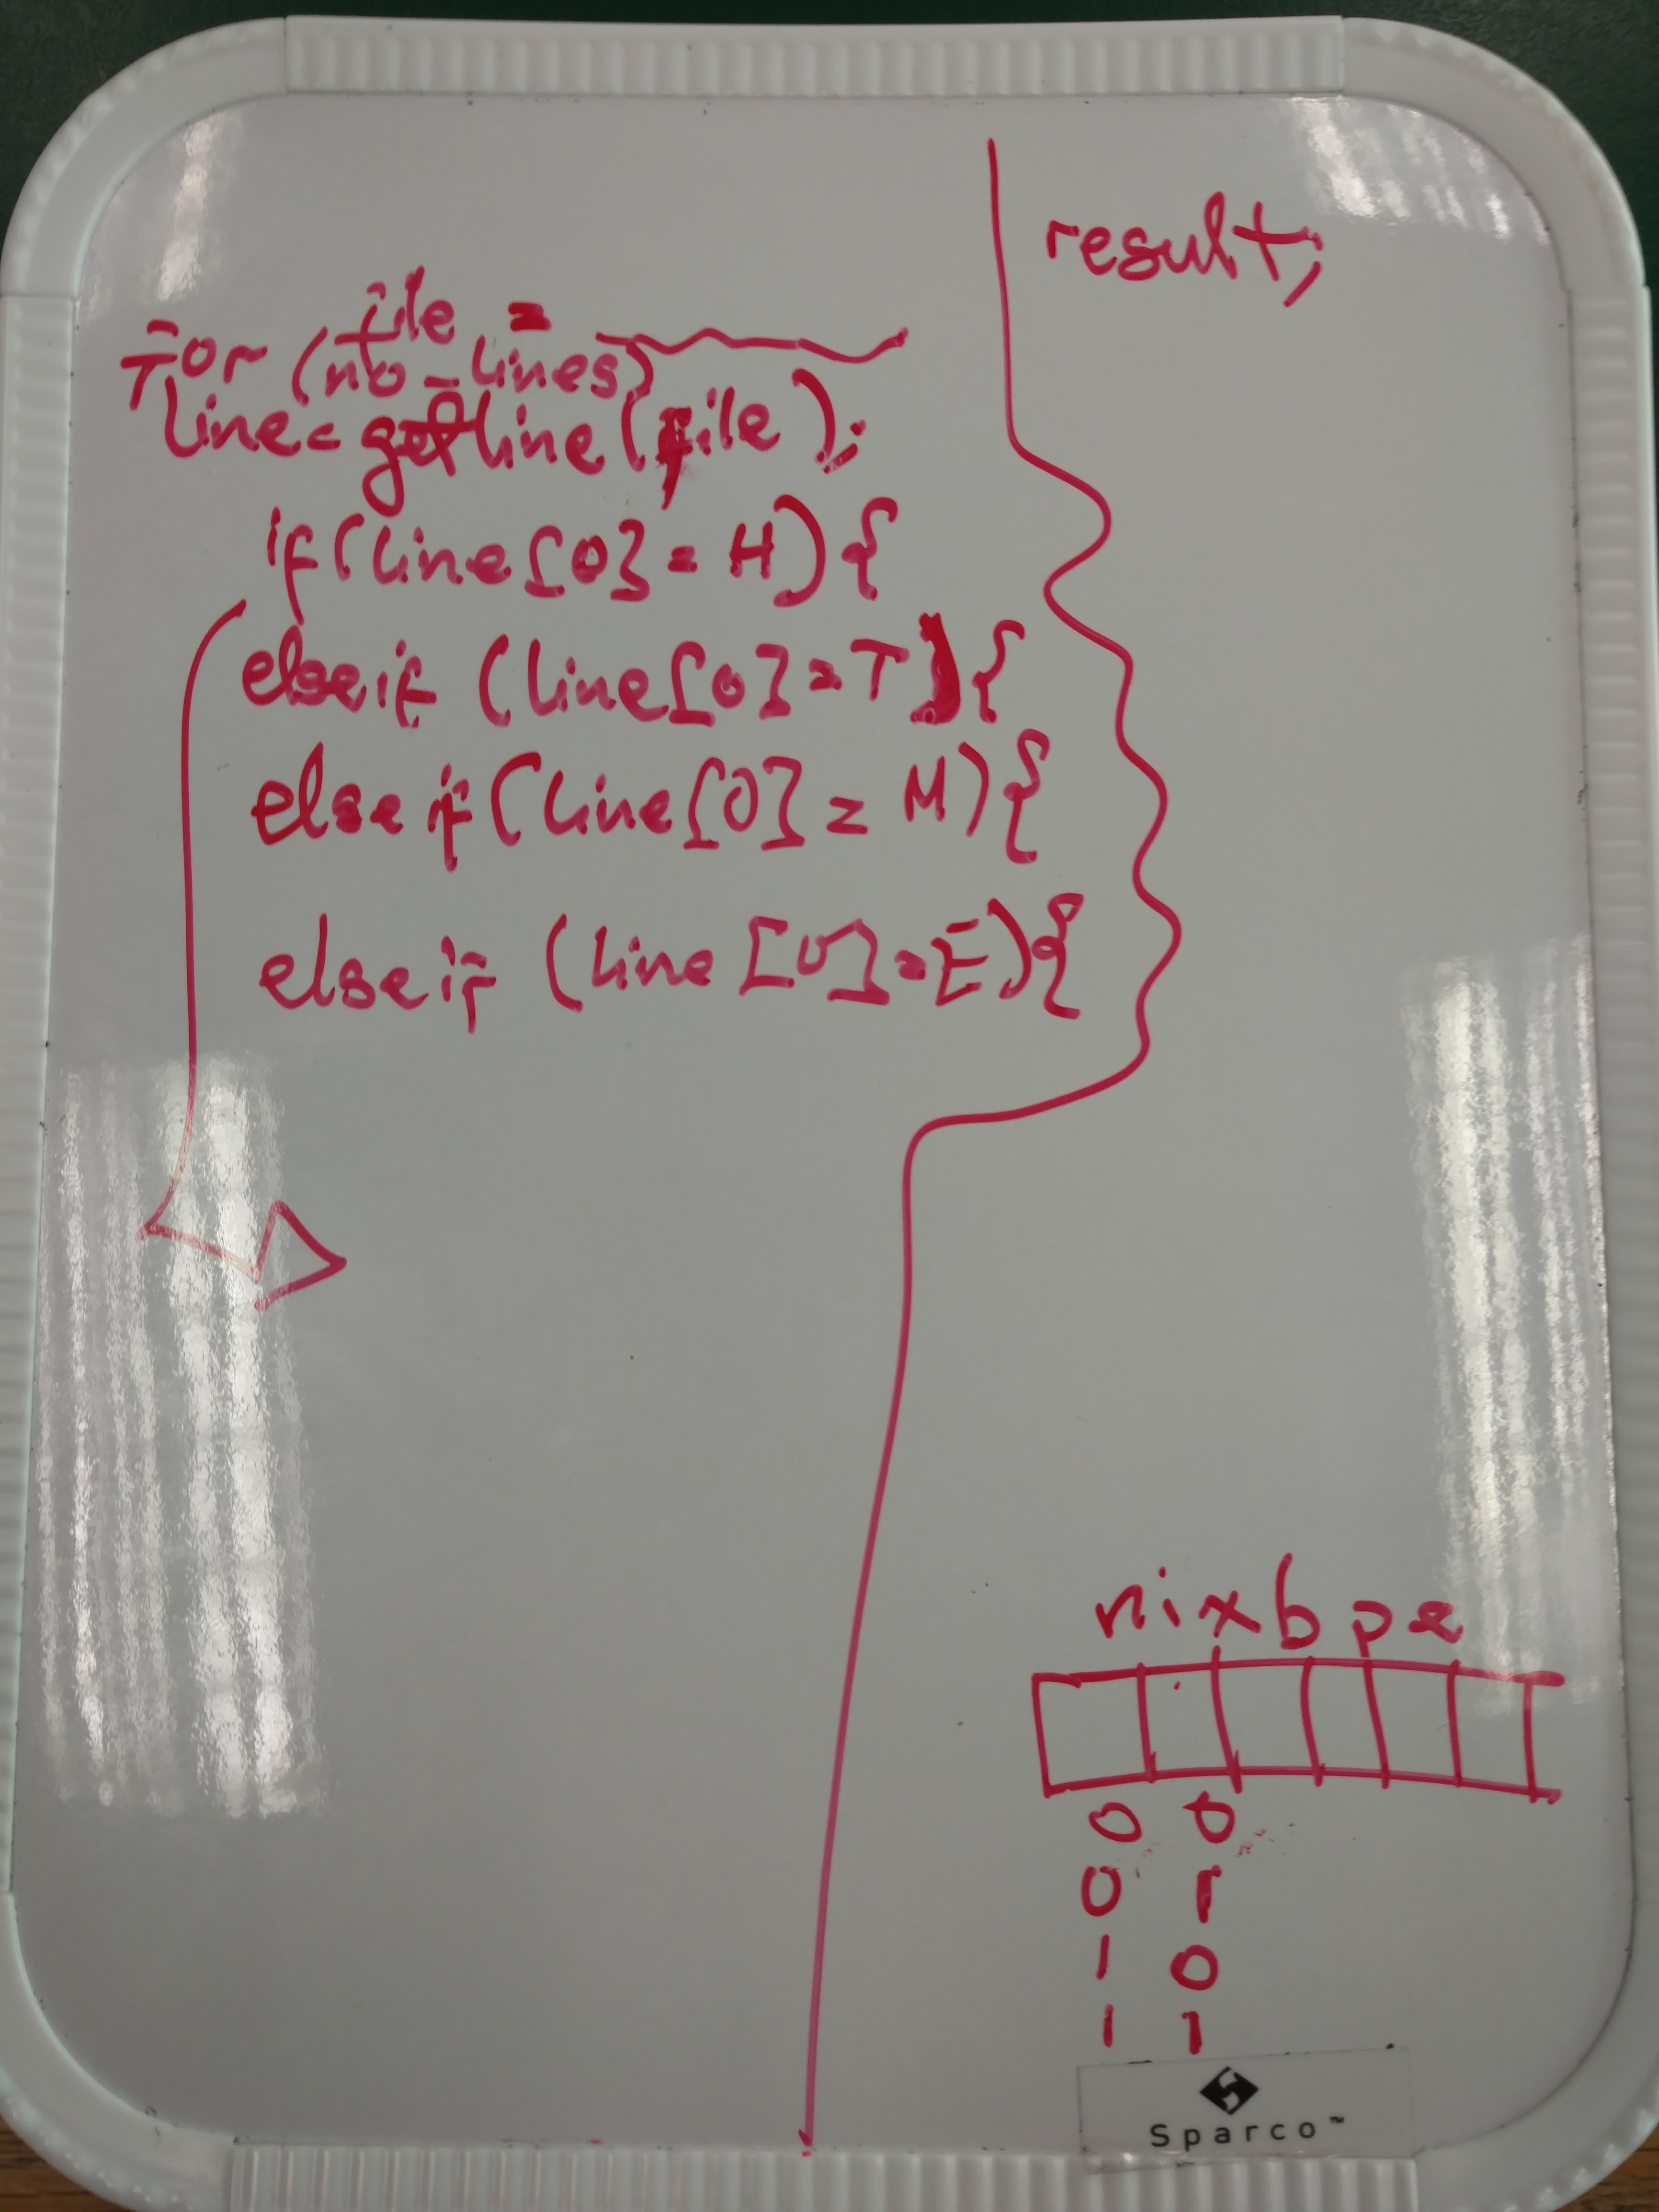 file =
for (no_lines)
line = getline(file);
if (line[0] = H) {
else if (line[0] = T) {
else if (line[0] = M) {
else if (line[0] = E) {
result;
n i x b p e
0 0
0 1
1 0
1 1
Sparco™